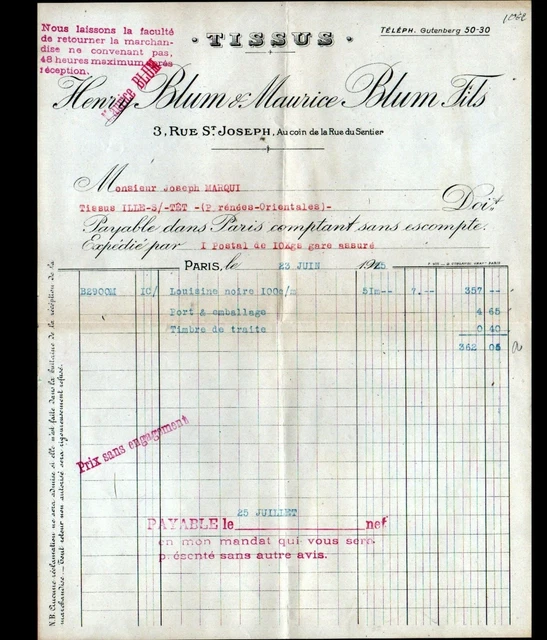 Nous laissons la faculté
de retourner la marchan-
dise ne convenant pas,
48 heures maximum après
réception.
TISSUS
TÉLÉPH. Gutenberg 50-30
Maurice BLUM
Henry Blum & Maurice Blum Fils
3, RUE ST JOSEPH, Au coin de la Rue du Sentier
Monsieur Joseph MARQUI
Tissus ILLE-S/-TÊT -(P rénées-Orientales)- Doit
Payable dans Paris comptant sans escompte.
Expédié par I Postal de 10Kgs gare assuré
PARIS, le 23 JUIN 1925
B2900M IC/ Louisine noire 100c/m 5Im-- 7.-- 357 --
Port & emballage 4 65
Timbre de traite 0 40
362 05
Prix sans engagement
25 JUILLET
PAYABLE le net
en mon mandat qui vous sera
présenté sans autre avis.
N.B. Aucune réclamation ne sera admise si elle n'est faite dans la huitaine de la réception de la
marchandise. _ Tout retour non autorisé sera rigoureusement refusé.